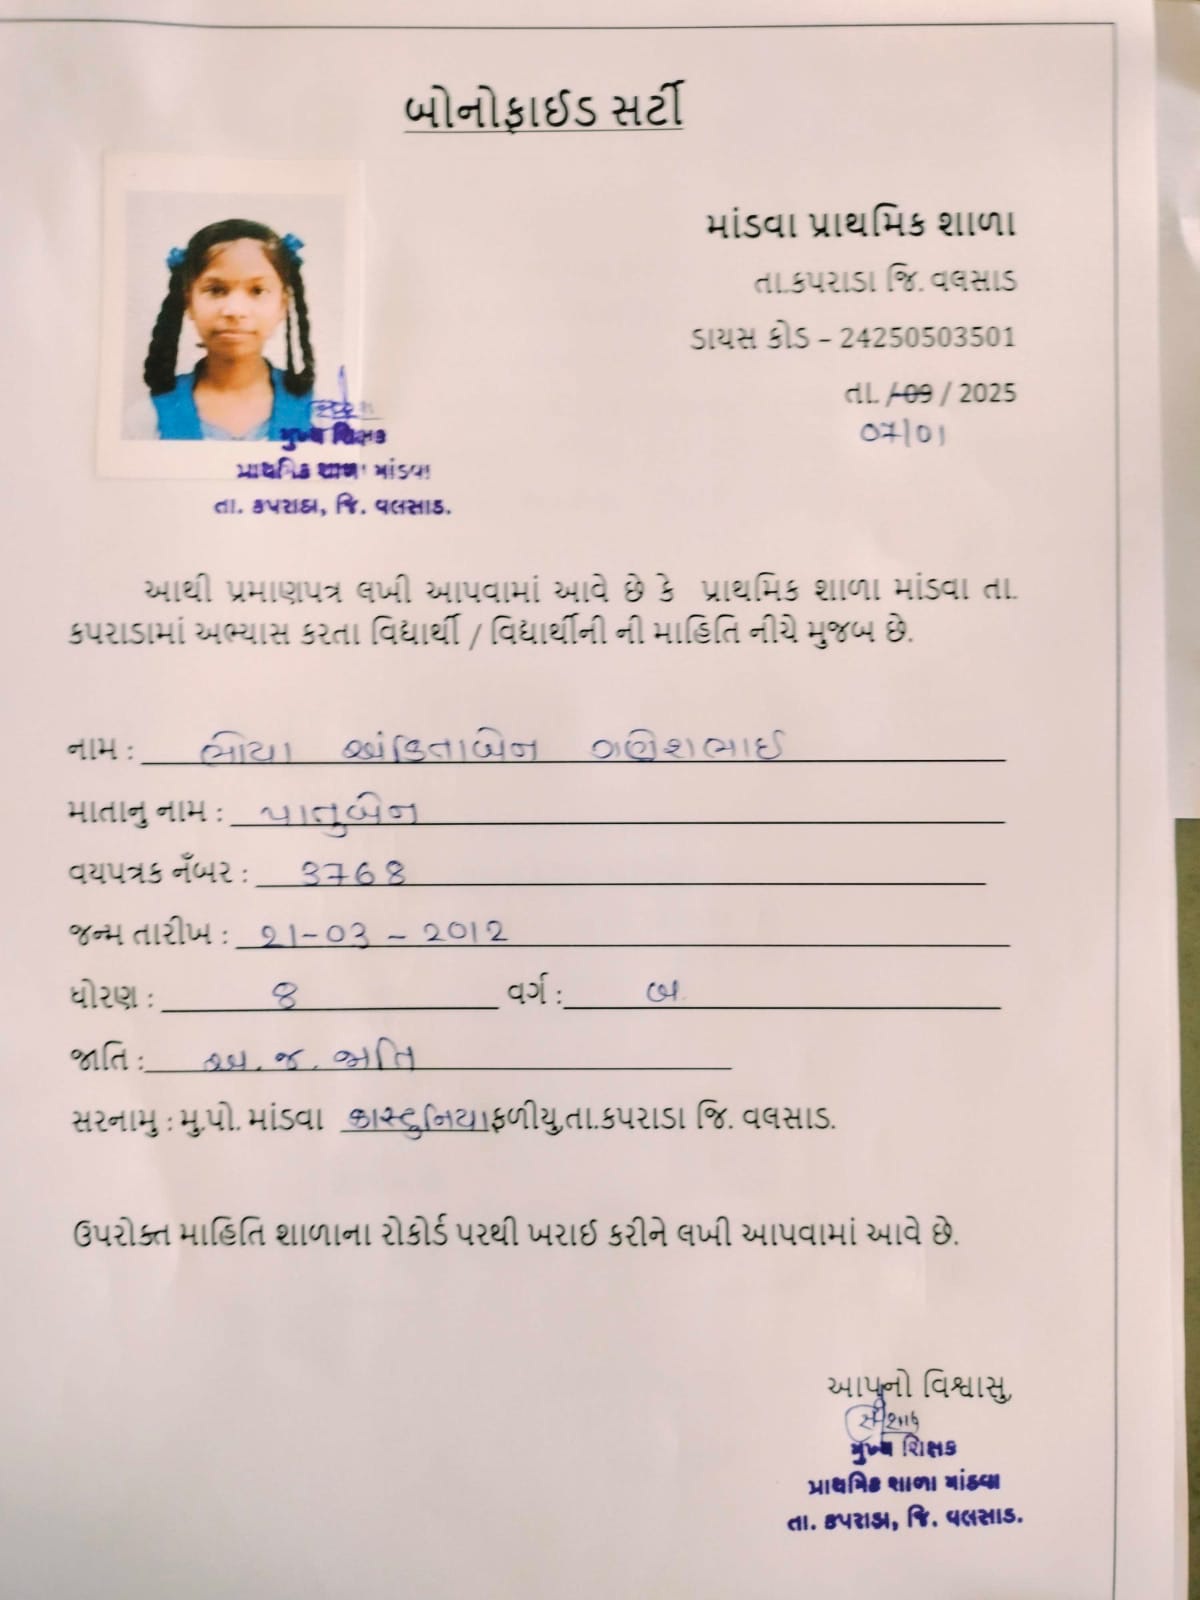 બોનોફાઈડ સર્ટી
માંડવા પ્રાથમિક શાળા
તા.કપરાડા જિ. વલસાડ
ડાયસ કોડ – 24250503501
તા. /09 / 2025
07/01
મુખ્ય શિક્ષક
પ્રાથમિક શાળા માંડવા
તા. કપરાડા, જિ. વલસાડ.
આથી પ્રમાણપત્ર લખી આપવામાં આવે છે કે પ્રાથમિક શાળા માંડવા તા.
કપરાડામાં અભ્યાસ કરતા વિદ્યાર્થી / વિદ્યાર્થીની ની માહિતિ નીચે મુજબ છે.
નામ : ભોયા અંકિતાબેન ગણેશભાઈ
માતાનુ નામ : પાતુબેન
વયપત્રક નઁબર : 3768
જન્મ તારીખ : 21-03-2012
ધોરણ : 8 વર્ગ : બ
જાતિ : અ.જ.જાતિ
સરનામુ : મુ.પો. માંડવા ફળીયુ,તા.કપરાડા જિ. વલસાડ.
ઉપરોક્ત માહિતિ શાળાના રોકોર્ડ પરથી ખરાઈ કરીને લખી આપવામાં આવે છે.
આપનો વિશ્વાસુ,
મુખ્ય શિક્ષક
પ્રાથમિક શાળા માંડવા
તા. કપરાડા, જિ. વલસાડ.